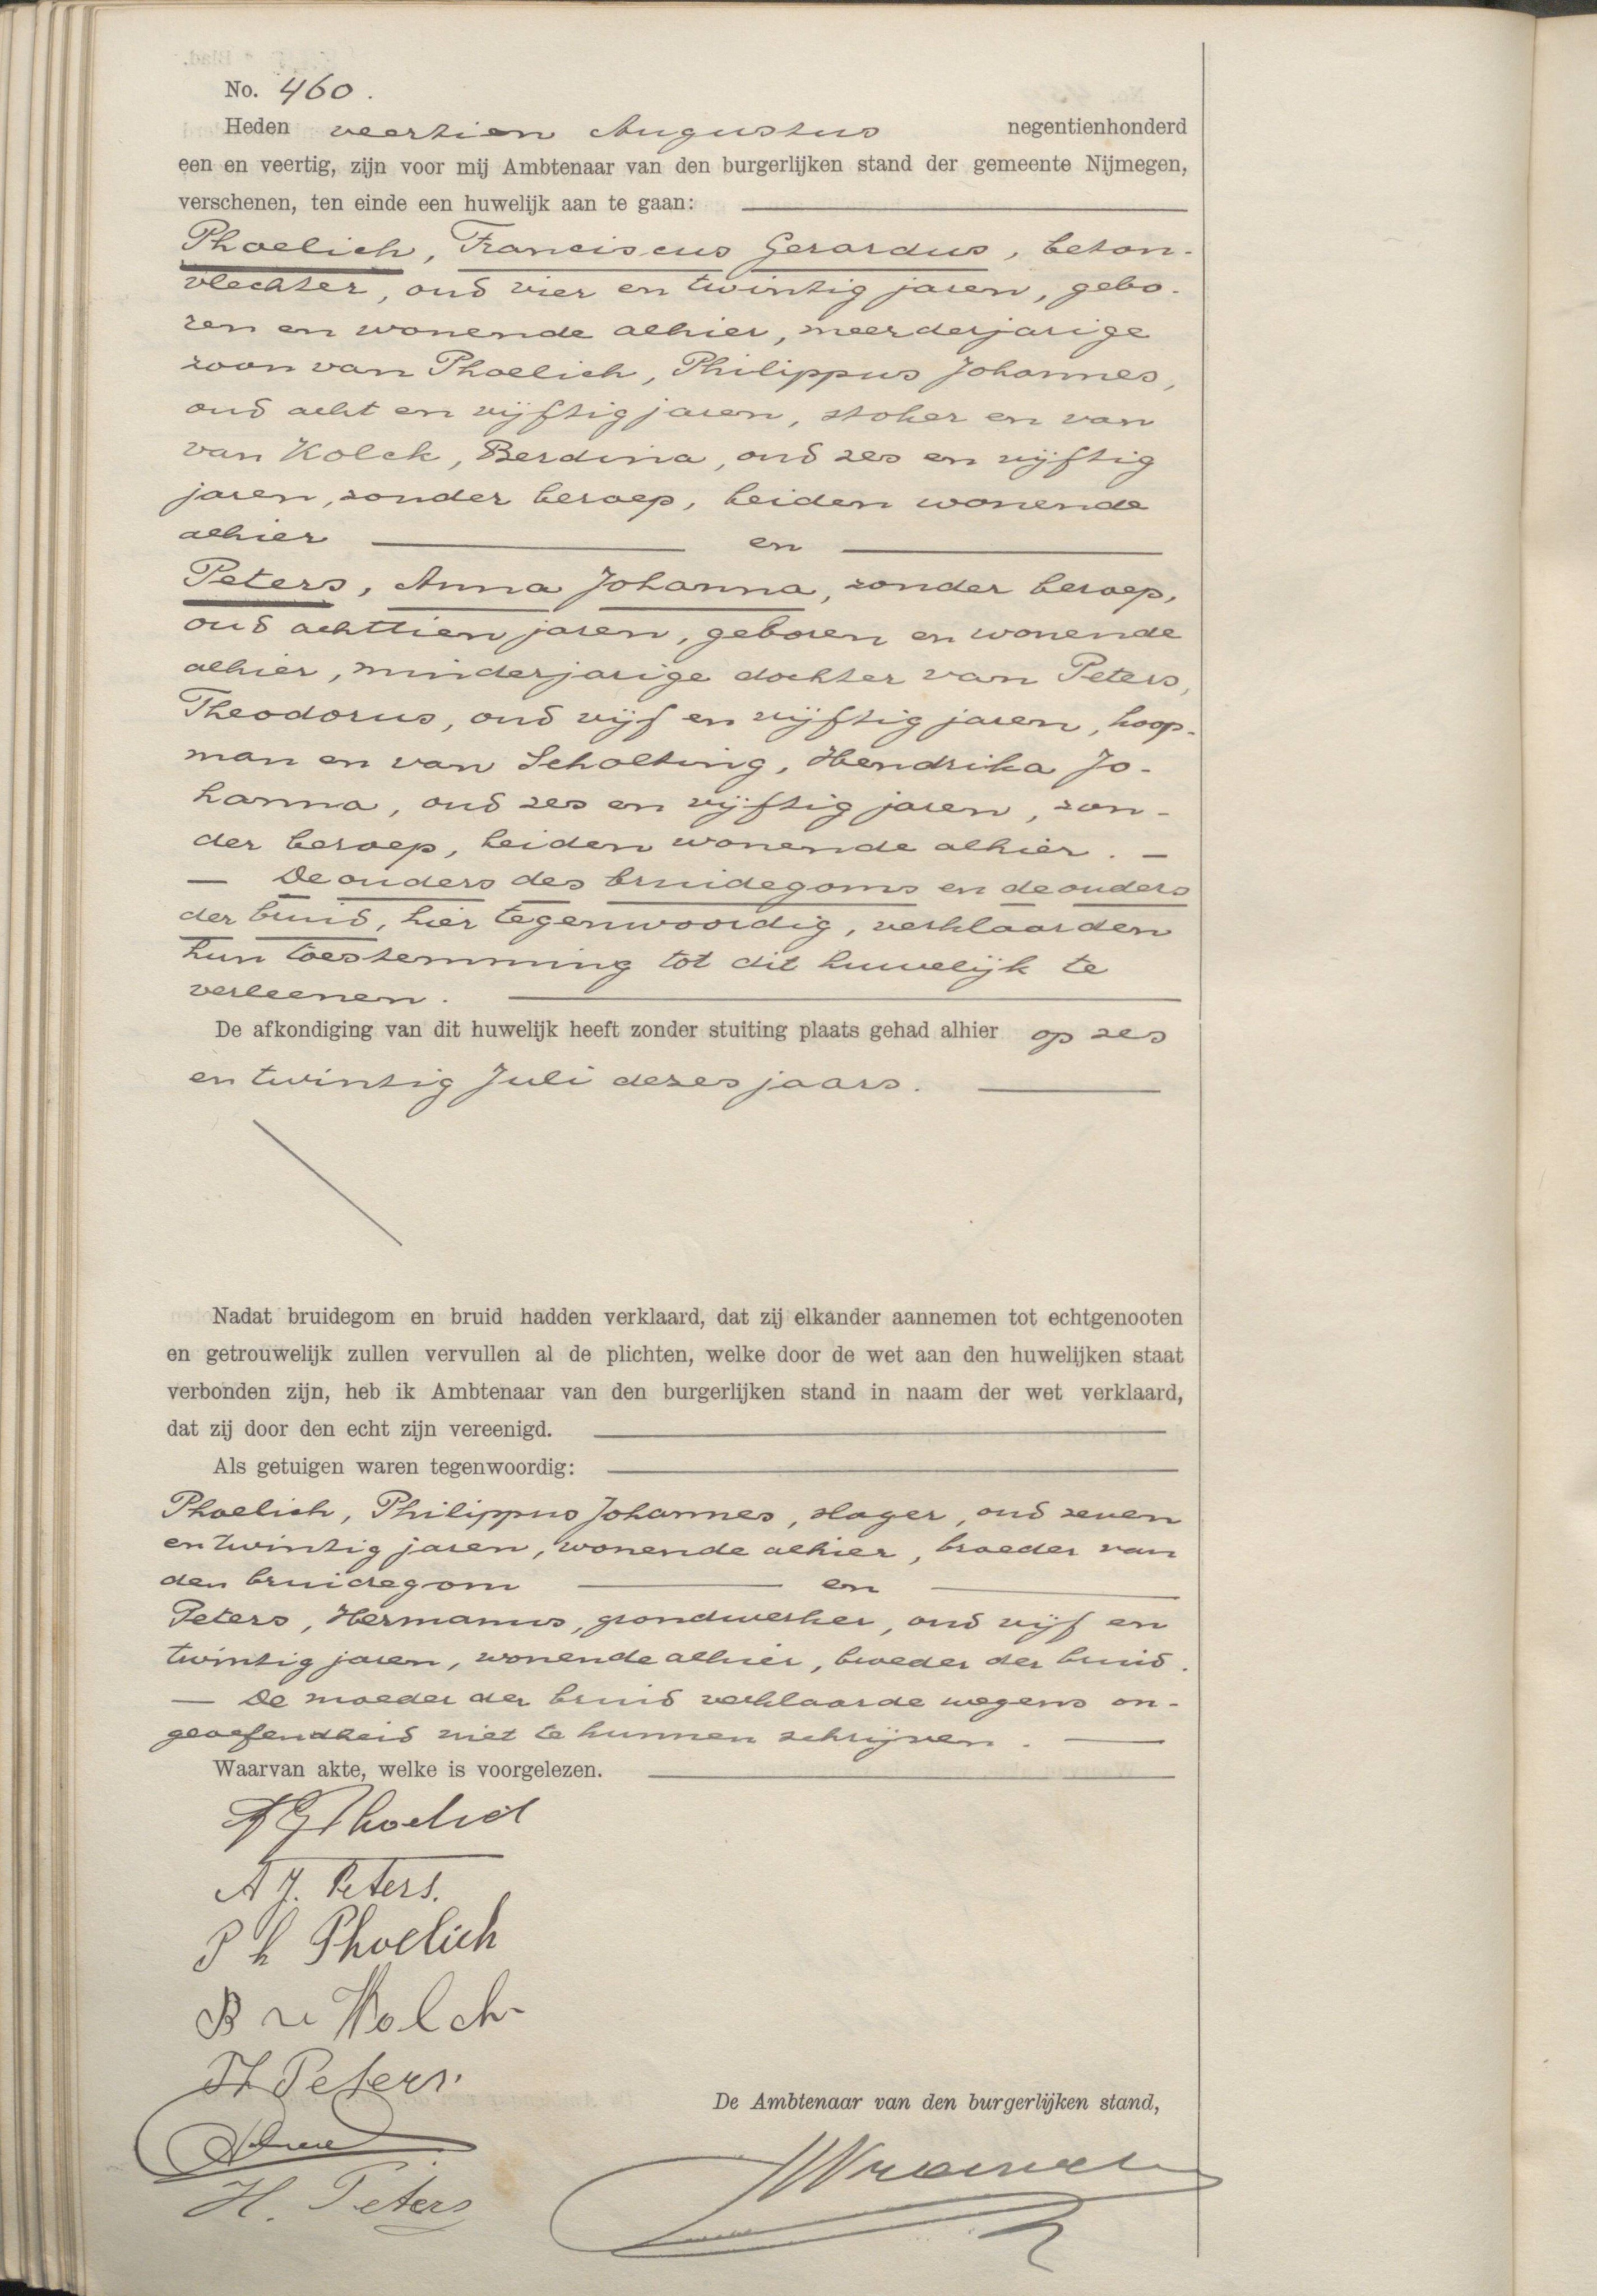 No. 460.
Heden veertien Augustus negentienhonderd
een en veertig, zijn voor mij Ambtenaar van den burgerlijken stand der gemeente Nijmegen,
verschenen, ten einde een huwelijk aan te gaan:
Phoelich, Franciscus Gerardus, beton-
vlechter, oud vier en twintig jaren, gebo-
ren en wonende alhier, meerderjarige
zoon van Phoelich, Philippus Johannes,
oud acht en vijftig jaren, stoker en van
van Kolck, Berdina, oud zes en vijftig
jaren, zonder beroep, beiden wonende
alhier en
Peters, Anna Johanna, zonder beroep,
oud achttien jaren, geboren en wonende
alhier, minderjarige dochter van Peters,
Theodorus, oud vijf en vijftig jaren, koop-
man en van Scholting, Hendrika Jo-
hanna, oud zes en vijftig jaren, zon-
der beroep, beiden wonende alhier. —
— De ouders des bruidegoms en de ouders
der bruid, hier tegenwoordig, verklaarden
hun toestemming tot dit huwelijk te
verleenen.
De afkondiging van dit huwelijk heeft zonder stuiting plaats gehad alhier op zes
en twintig Juli dezes jaars.
Nadat bruidegom en bruid hadden verklaard, dat zij elkander aannemen tot echtgenooten
en getrouwelijk zullen vervullen al de plichten, welke door de wet aan den huwelijken staat
verbonden zijn, heb ik Ambtenaar van den burgerlijken stand in naam der wet verklaard,
dat zij door den echt zijn vereenigd.
Als getuigen waren tegenwoordig:
Phoelich, Philippus Johannes, slager, oud zeven
en twintig jaren, wonende alhier, broeder van
den bruidegom en
Peters, Hermanus, grondwerker, oud vijf en
twintig jaren, wonende alhier, broeder der bruid.
— De moeder der bruid verklaarde wegens on-
geoefendheid niet te kunnen schrijven.
Waarvan akte, welke is voorgelezen.
F G Phoelich
A J. Peters.
P h Phoelich
B v Kolck
Th Peters.
De Ambtenaar van den burgerlijken stand,
H. Peters